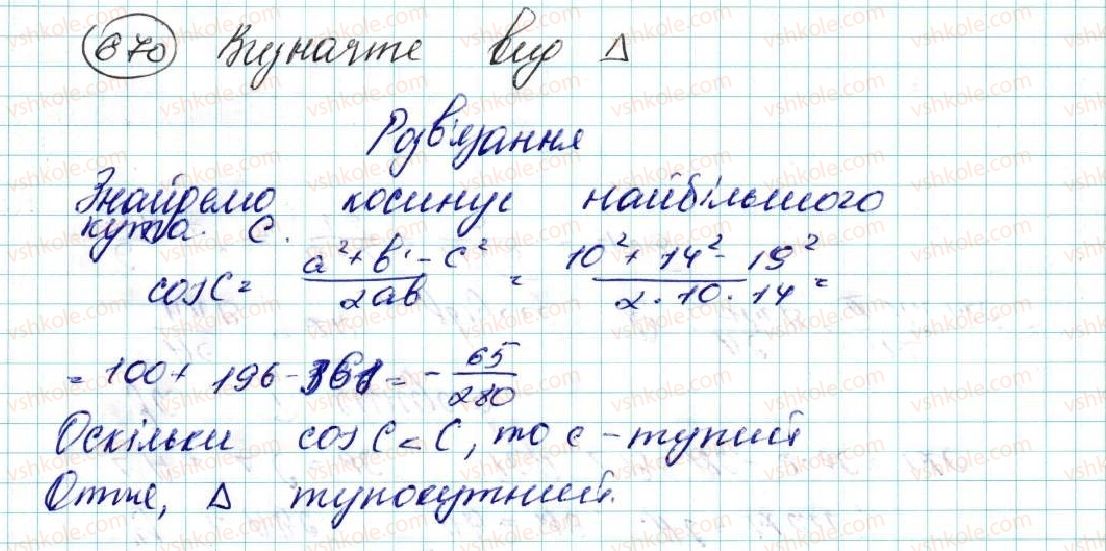 670 Визначте вид Δ
Розв'язання
Знайдемо косинус найбільшого
кута C.
cosC = (a² + b² - c²) / (2ab) = (10² + 14² - 19²) / (2 · 10 · 14) =
= 100 + 196 - 361 = - 65/280
Оскільки cosC < C, то c - тупий
Отже, Δ тупокутний.